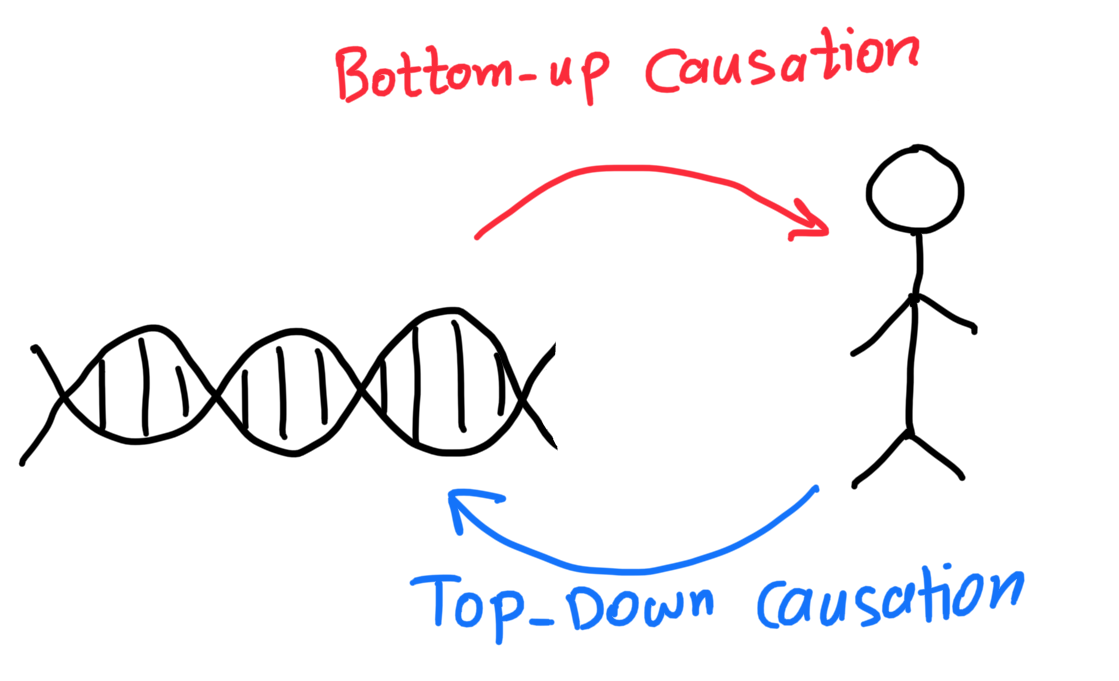 Bottom-up Causation
Top-Down Causation